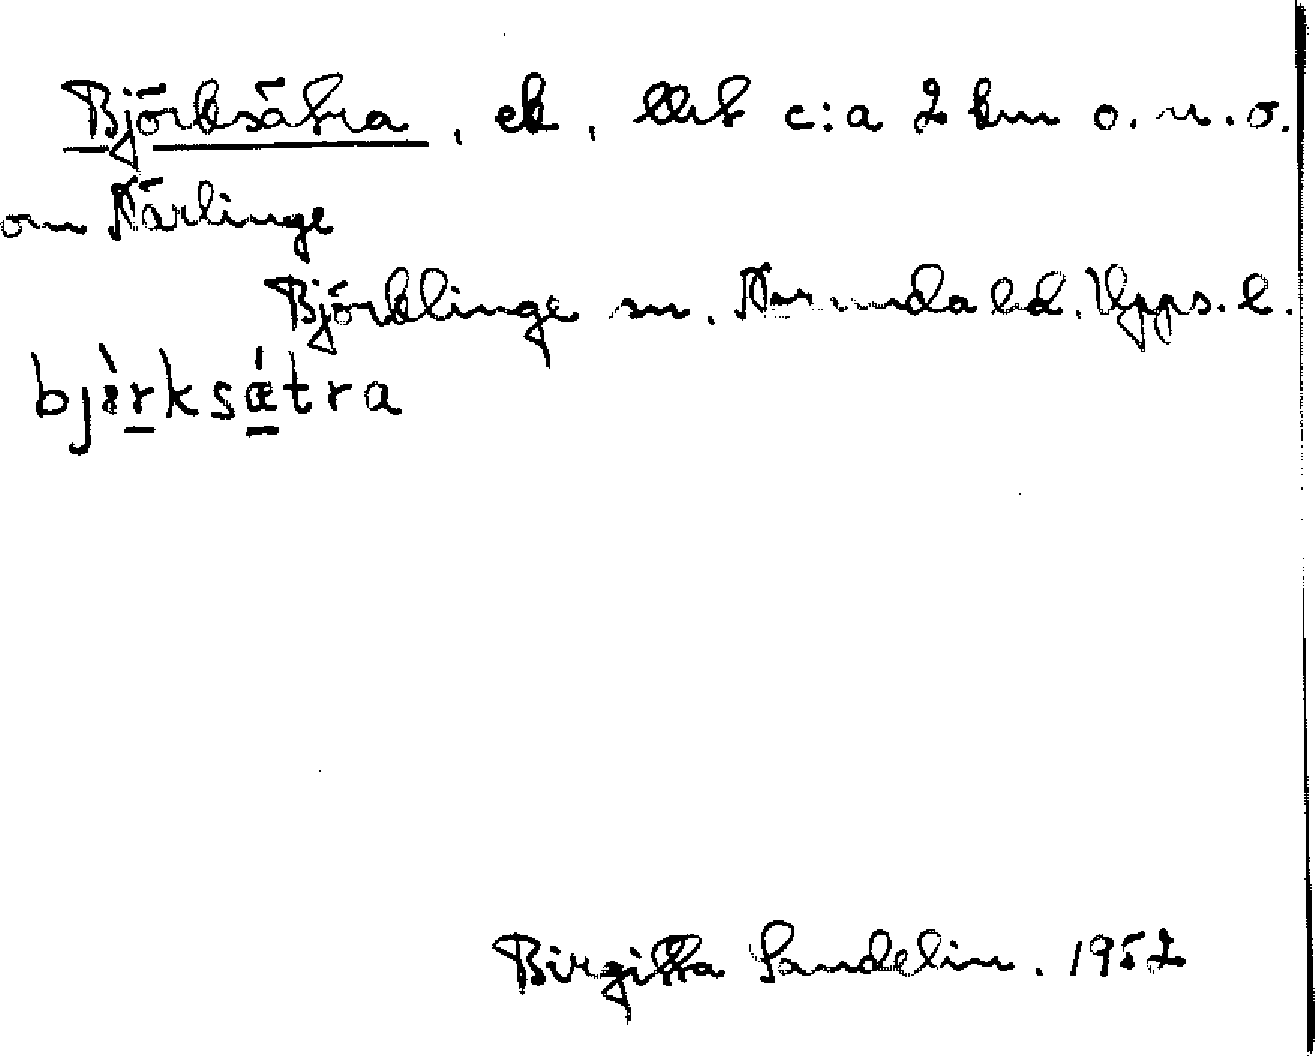 Björksätra, ek, c:a 2 km o.n.o.
om Närlinge
Björklinge sn. Norunda hd. Upps. l.
bjèrksǽtra
Birgitta Sandelin. 1952